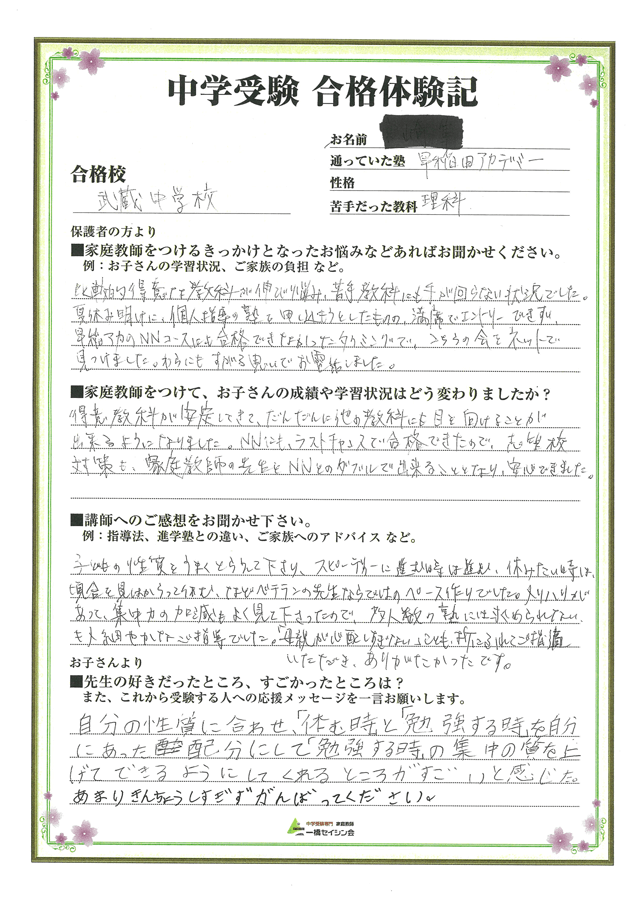 中学受験 合格体験記
お名前
通っていた塾 早稲田アカデミー
合格校 武蔵中学校
性格
苦手だった教科 理科
保護者の方より
■家庭教師をつけるきっかけとなったお悩みなどあればお聞かせください。
例：お子さんの学習状況、ご家族の負担 など。
得意な教科が伸び悩み、苦手教科にも手が回らない状況でした。
夏休み明けに、個人指導の塾を申し込もうとしたものの、満席でエントリーできず、
早稲アカのNNコースにも合格できなかったタイミングで、こちらの会をネットで
見つけました。わらにもすがる思いでお電話しました。
■家庭教師をつけて、お子さんの成績や学習状況はどう変わりましたか？
得意教科が安定してきて、だんだんに他の教科にも目を向けることが
出来るようになりました。NNにも、ラストチャンスで合格できたので、志望校
対策も、家庭教師の先生とNNとのダブルで出来ることとなり、安心できました。
■講師へのご感想をお聞かせ下さい。
例：指導法、進学塾との違い、ご家族へのアドバイス など。
子供の性質をうまくとらえて下さり、スピーディーに進む時は進む、休みたい時は、
頃合を見はからって休む、などベテランの先生ならではのペース作りでした。メリハリが
あって、集中力の加減もよく見て下さったので、多人数の塾には求められない
きめ細やかなご指導でした。「母親が心配し過ぎない」ことも、折にふれてご指摘
いただき、ありがたかったです。
お子さんより
■先生の好きだったところ、すごかったところは？
また、これから受験する人への応援メッセージを一言お願いします。
自分の性質に合わせ、「休む時」と「勉強する時」を自分
にあった配分にして「勉強する時」の集中の質を上
げてできるようにしてくれるところがすごいと感じた。
あまりきんちょうしすぎずがんばってください。
中学受験専門 家庭教師
一橋セイシン会